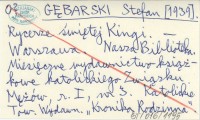 02 GĘBARSKI Stefan [1939].
Rycerze świętej Kingi. —
Warszawa Nasza Bibljoteka.
Miesięczne wydawnictwo książ-
kowe katolickiego Związku
Mężów, r. I nr 3. Katolickie
Tow. Wydawn. "Kronika Rodzinna"